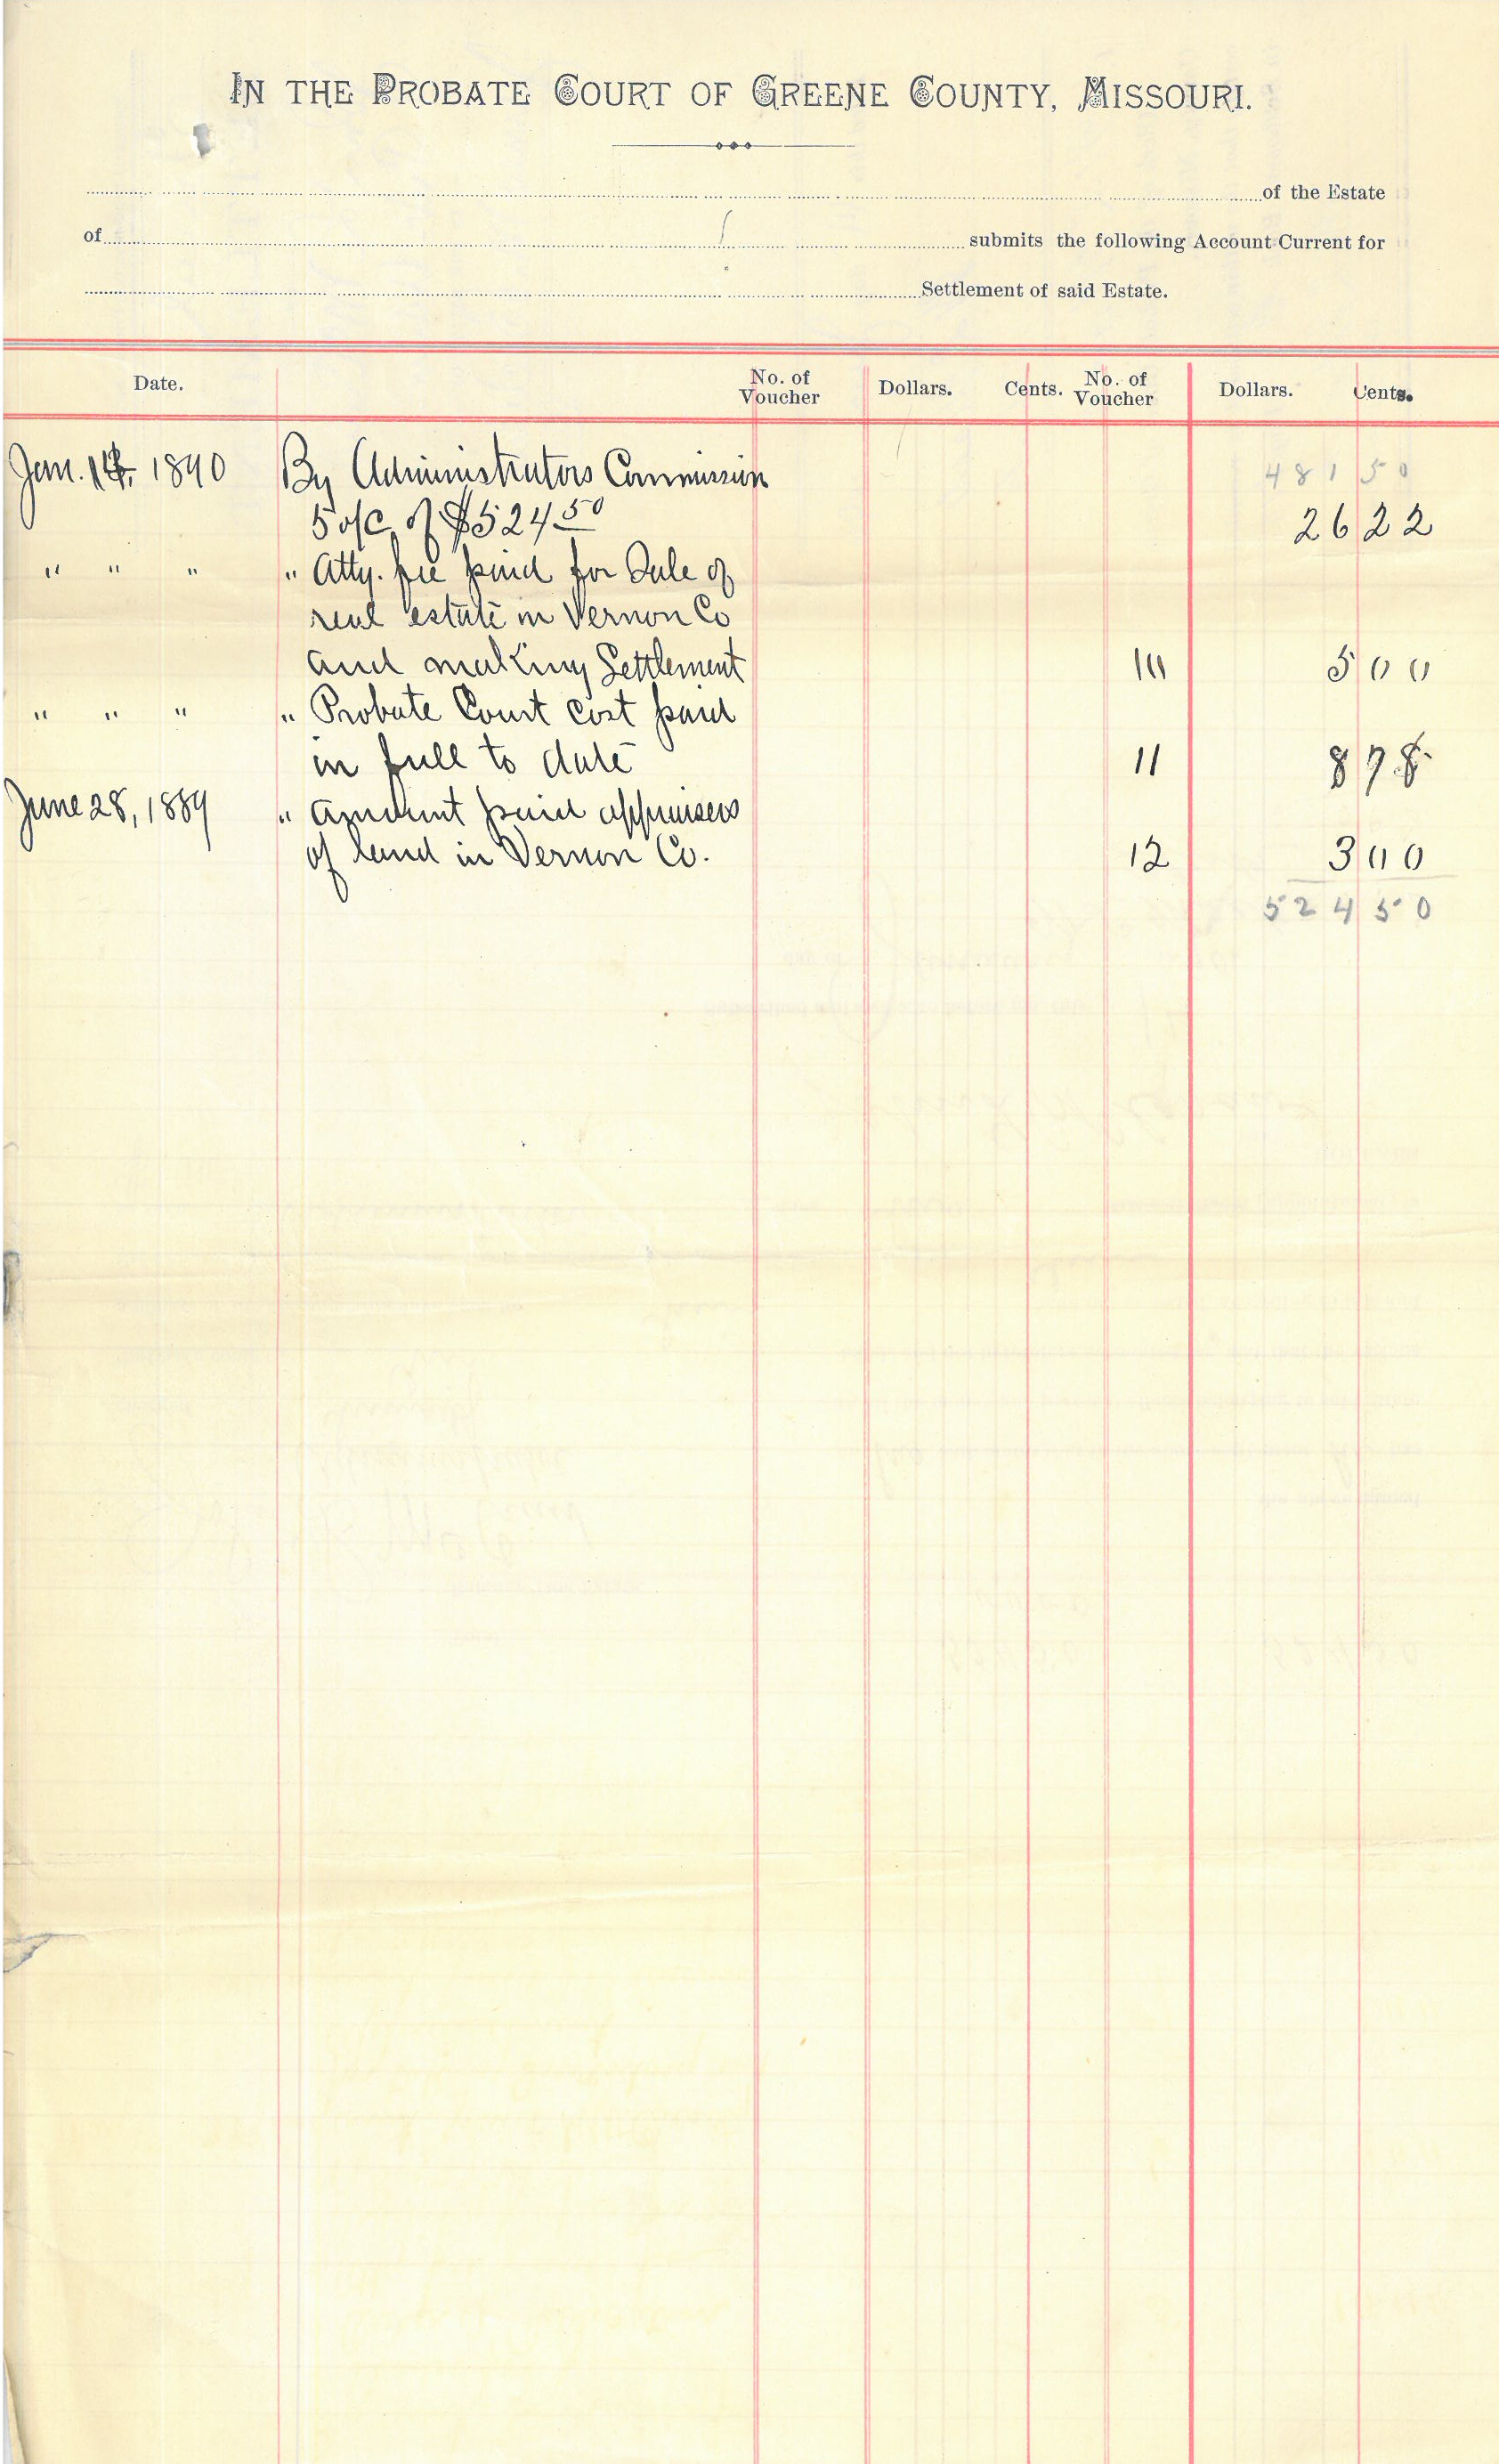 IN THE PROBATE COURT OF GREENE COUNTY, MISSOURI.
of the Estate
of submits the following Account Current for
Settlement of said Estate.
Date. No. of Voucher Dollars. Cents. No. of Voucher Dollars. Cents.
Jan. 1890 By Administrators Commission 481 50
5 o/c of $524 50 26 22
" " " " Atty. fee paid for Sale of
real estate in Vernon Co
and making Settlement 10 5 00
" " " " Probate Court cost paid
in full to date 11 8 78
June 28, 1889 " Amount paid appraisers
of land in Vernon Co. 12 3 00
524 50